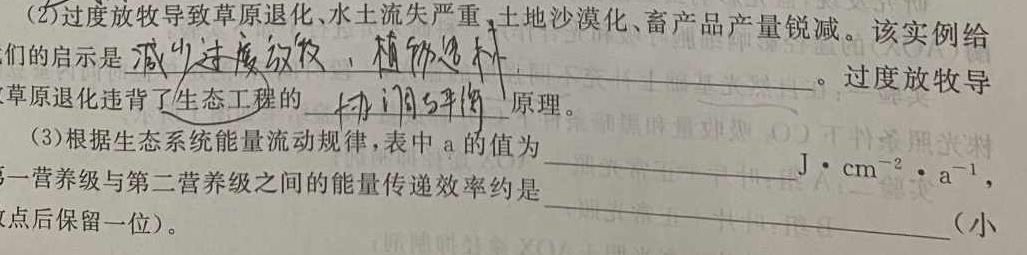 (2)过度放牧导致草原退化、水土流失严重、土地沙漠化、畜产品产量锐减。该实例给
们的启示是 减少过度放牧，植物造林 。过度放牧导
草原退化违背了生态工程的 协调与平衡 原理。
(3)根据生态系统能量流动规律,表中 a 的值为 J·cm⁻²·a⁻¹,
第一营养级与第二营养级之间的能量传递效率约是 (小
数点后保留一位)。